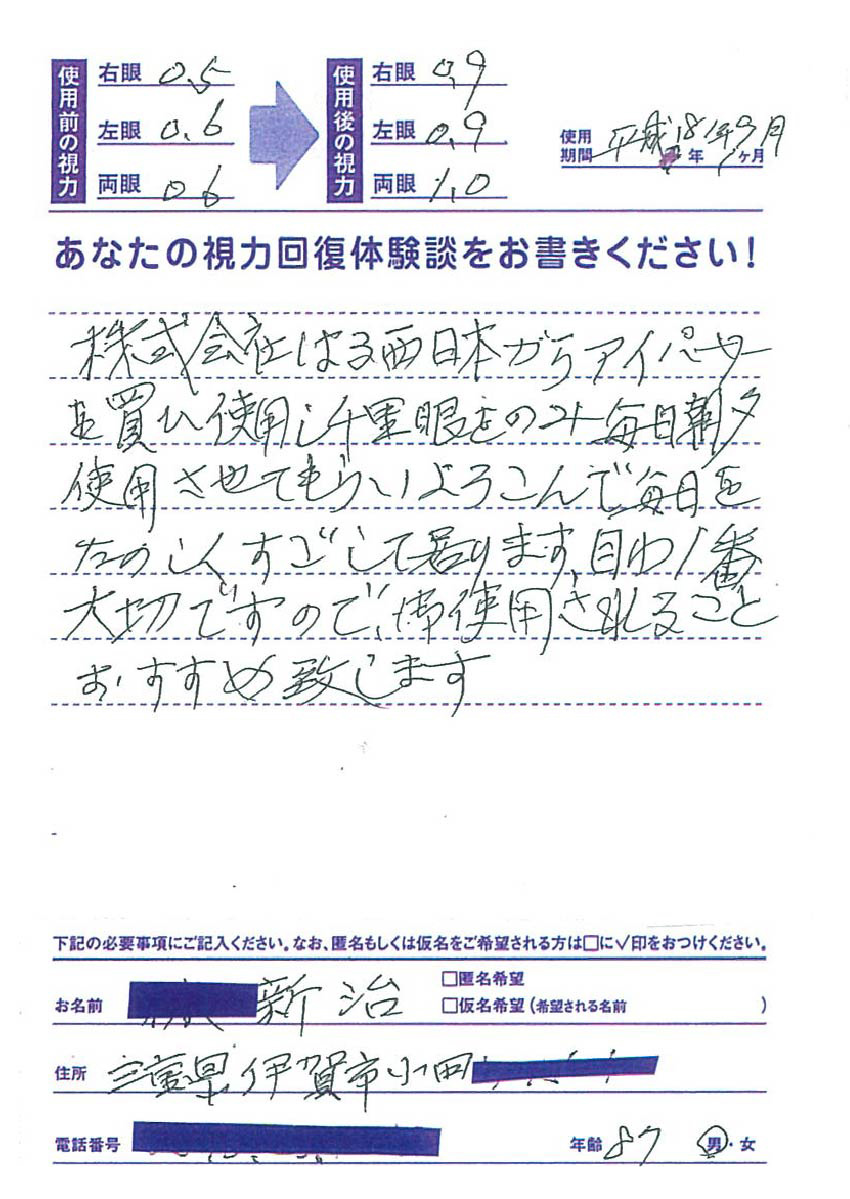 使用前の視力
右眼 0.5
左眼 0.6
両眼 0.6
使用後の視力
右眼 0.9
左眼 0.9
両眼 1.0
使用期間 平成18年9月 年 ヶ月
あなたの視力回復体験談をお書きください!
株式会社はる西日本からアイパワー
を買ひ使用し千里眼をのみ毎日朝夕
使用させてもらいよろこんで毎日を
たのしくすごして居ります、目わ1番
大切ですので、御使用されること
おすすめ致します
下記の必要事項にご記入ください。なお、匿名もしくは仮名をご希望される方は□に√印をおつけください。
お名前 新治
□匿名希望
□仮名希望(希望される名前 )
住所 三重県伊賀市小田
電話番号
年齢 87 男・女